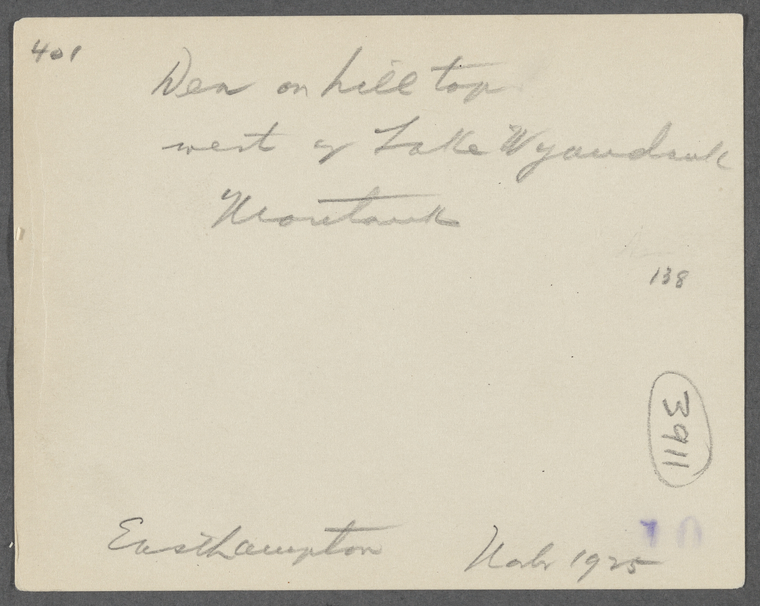 401
on hill top
west of Lake Wyandank
Montauk
138
3911
10
Easthampton 1925